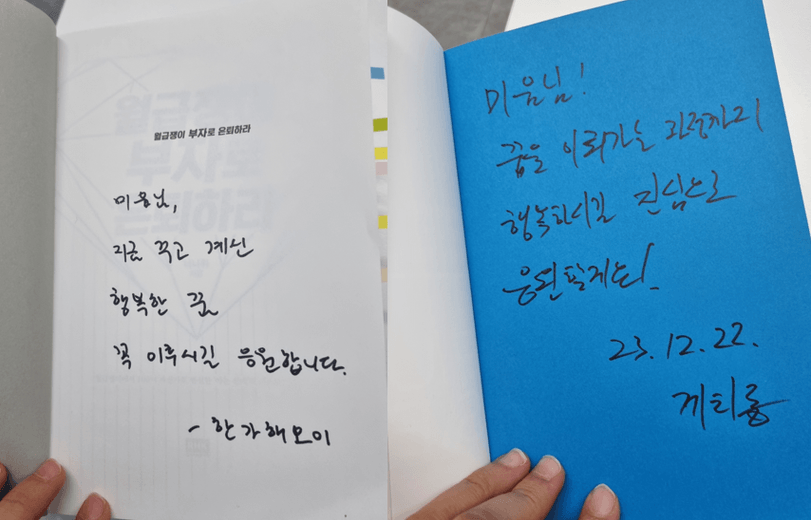 월급쟁이
부자로
은퇴하라
월급쟁이 부자로 은퇴하라
미움님,
지금 꾸고 계신
행복한 꿈
꼭 이루시길 응원합니다.
- 한가해보이
미움님!
꿈을 이뤄가는 과정까지
행복하시길 진심으로
응원할게요!
23.12.22.